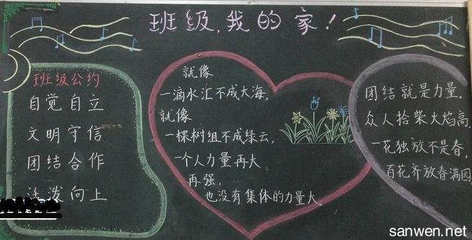 班级,我的家!
班级公约
自觉自立
文明守信
团结合作
活泼向上
就像
一滴水汇不成大海,
就像
一棵树组不成绿云,
一个人力量再大
再强,
也没有集体的力量大
团结就是力量,
众人拾柴火焰高,
一花独放不是春,
百花齐放春满园
sanwen.net